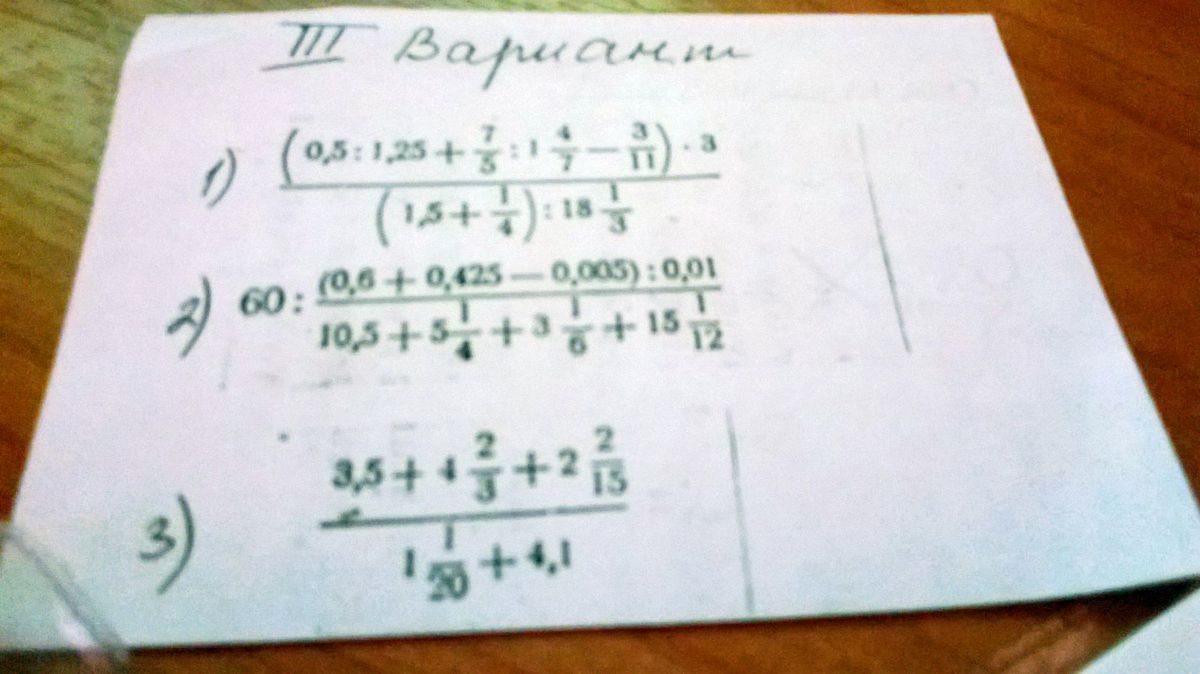 III Вариант
1) (0,5 : 1,25 + 7/5 : 1 4/7 − 3/11) · 3
(1,5 + 1/4) : 18 1/3
2) 60 : (0,6 + 0,425 − 0,005) : 0,01
10,5 + 5 1/4 + 3 1/6 + 15 1/12
3) 3,5 + 4 2/3 + 2 2/15
1 1/20 + 4,1